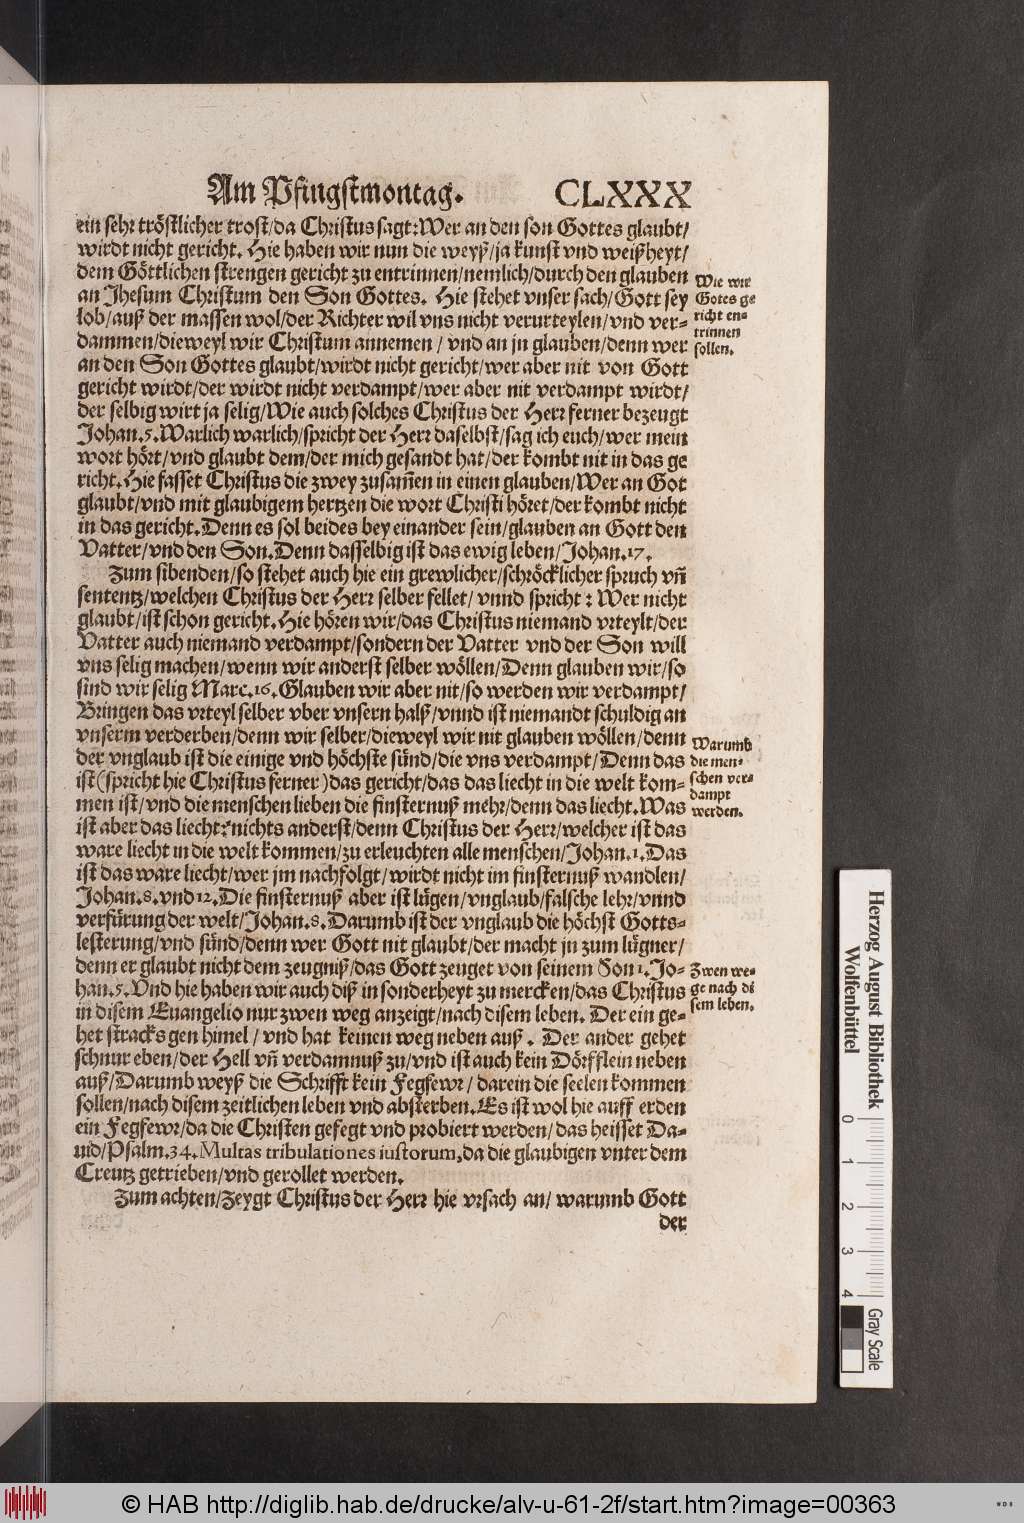 Am Pfingstmontag. CLXXX
ein sehr tröstlicher trost/da Christus sagt: Wer an den son Gottes glaubt/
wirdt nicht gericht. Hie haben wir nun die weyß/ja kunst vnd weißheyt/
dem Göttlichen strengen gericht zu entrinnen/nemlich/durch den glauben
an Jhesum Christum den Son Gottes. Hie stehet vnser sach/Gott sey
lob/auß der massen wol/der Richter wil vns nicht verurteylen/vnd ver-
dammen/dieweyl wir Christum annemen/ vnd an jn glauben/denn wer
an den Son Gottes glaubt/wirdt nicht gericht/wer aber nit von Gott
gericht wirdt/der wirdt nicht verdampt/wer aber nit verdampt wirdt/
der selbig wirt ja selig/Wie auch solches Christus der Herr ferner bezeugt
Johan.5.Warlich warlich/spricht der Herr daselbst/sag ich euch/wer mein
wort hört/vnd glaubt dem/der mich gesandt hat/der kombt nit in das ge
richt.Hie fasset Christus die zwey zusam̃en in einen glauben/Wer an Got
glaubt/vnd mit glaubigem hertzen die wort Christi höret/der kombt nicht
in das gericht.Denn es sol beides bey einander sein/glauben an Gott den
Vatter/vnd den Son.Denn dasselbig ist das ewig leben/Johan.17.
Wie wir
Gotes ge
richt en-
trinnen
sollen.
Zum sibenden/so stehet auch hie ein grewlicher/schröcklicher spruch vñ
sententz/welchen Christus der Herr selber fellet/ vnnd spricht: Wer nicht
glaubt/ist schon gericht.Hie hören wir/das Christus niemand vrteylt/der
Vatter auch niemand verdampt/sondern der Vatter vnd der Son will
vns selig machen/wenn wir anderst selber wöllen/Denn glauben wir/so
sind wir selig Marc.16.Glauben wir aber nit/so werden wir verdampt/
Bringen das vrteyl selber vber vnsern halß/vnnd ist niemandt schuldig an
vnserm verderben/denn wir selber/dieweyl wir nit glauben wöllen/denn
der vnglaub ist die einige vnd höchste sünd/die vns verdampt/Denn das
ist(spricht hie Christus ferner)das gericht/das das liecht in die welt kom-
men ist/vnd die menschen lieben die finsternuß mehr/denn das liecht.Was
ist aber das liecht?nichts anderst/denn Christus der Herr/welcher ist das
ware liecht in die welt kommen/zu erleuchten alle menschen/Johan.1.Das
ist das ware liecht/wer jm nachfolgt/wirdt nicht im finsternuß wandlen/
Johan.8.vnd 12.Die finsternuß aber ist lügen/vnglaub/falsche lehr/vnnd
verfürung der welt/Johan.8.Darumb ist der vnglaub die höchst Gotts-
lesterung/vnd sünd/denn wer Gott nit glaubt/der macht jn zum lügner/
denn er glaubt nicht dem zeugniß/das Gott zeuget von seinem Son 1.Jo-
han.5.Vnd hie haben wir auch diß in sonderheyt zu mercken/das Christus
in disem Euangelio nur zwen weg anzeigt/nach disem leben. Der ein ge-
het stracks gen himel/ vnd hat keinen weg neben auß. Der ander gehet
schnur eben/der Hell vñ verdamnuß zu/vnd ist auch kein Dörfflein neben
auß/Darumb weyß die Schrifft kein Fegfewr/ darein die seelen kommen
sollen/nach disem zeitlichen leben vnd absterben.Es ist wol hie auff erden
ein Fegfewr/da die Christen gefegt vnd probiert werden/das heisset Da-
uid/Psalm.34.Multas tribulationes iustorum,da die glaubigen vnter dem
Creutz getrieben/vnd gerollet werden.
Warumb
die men-
schen ver-
dampt
werden.
Zwen we-
ge nach di
sem leben.
Zum achten/Zeygt Christus der Herr hie vrsach an/ warumb Gott
der
Herzog August Bibliothek
Wolfenbüttel
0 1 2 3 4
Gray Scale
© HAB http://diglib.hab.de/drucke/alv-u-61-2f/start.htm?image=00363